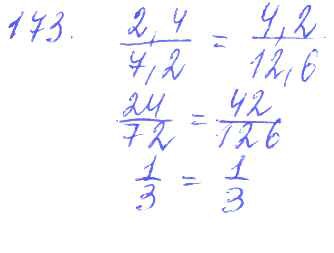 173. 2,4/7,2 = 4,2/12,6
24/72 = 42/126
1/3 = 1/3